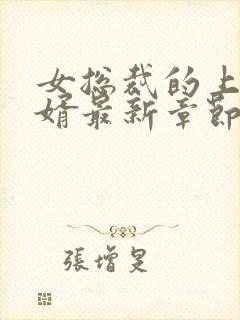 女总裁的上
婿最新章节
張增旻